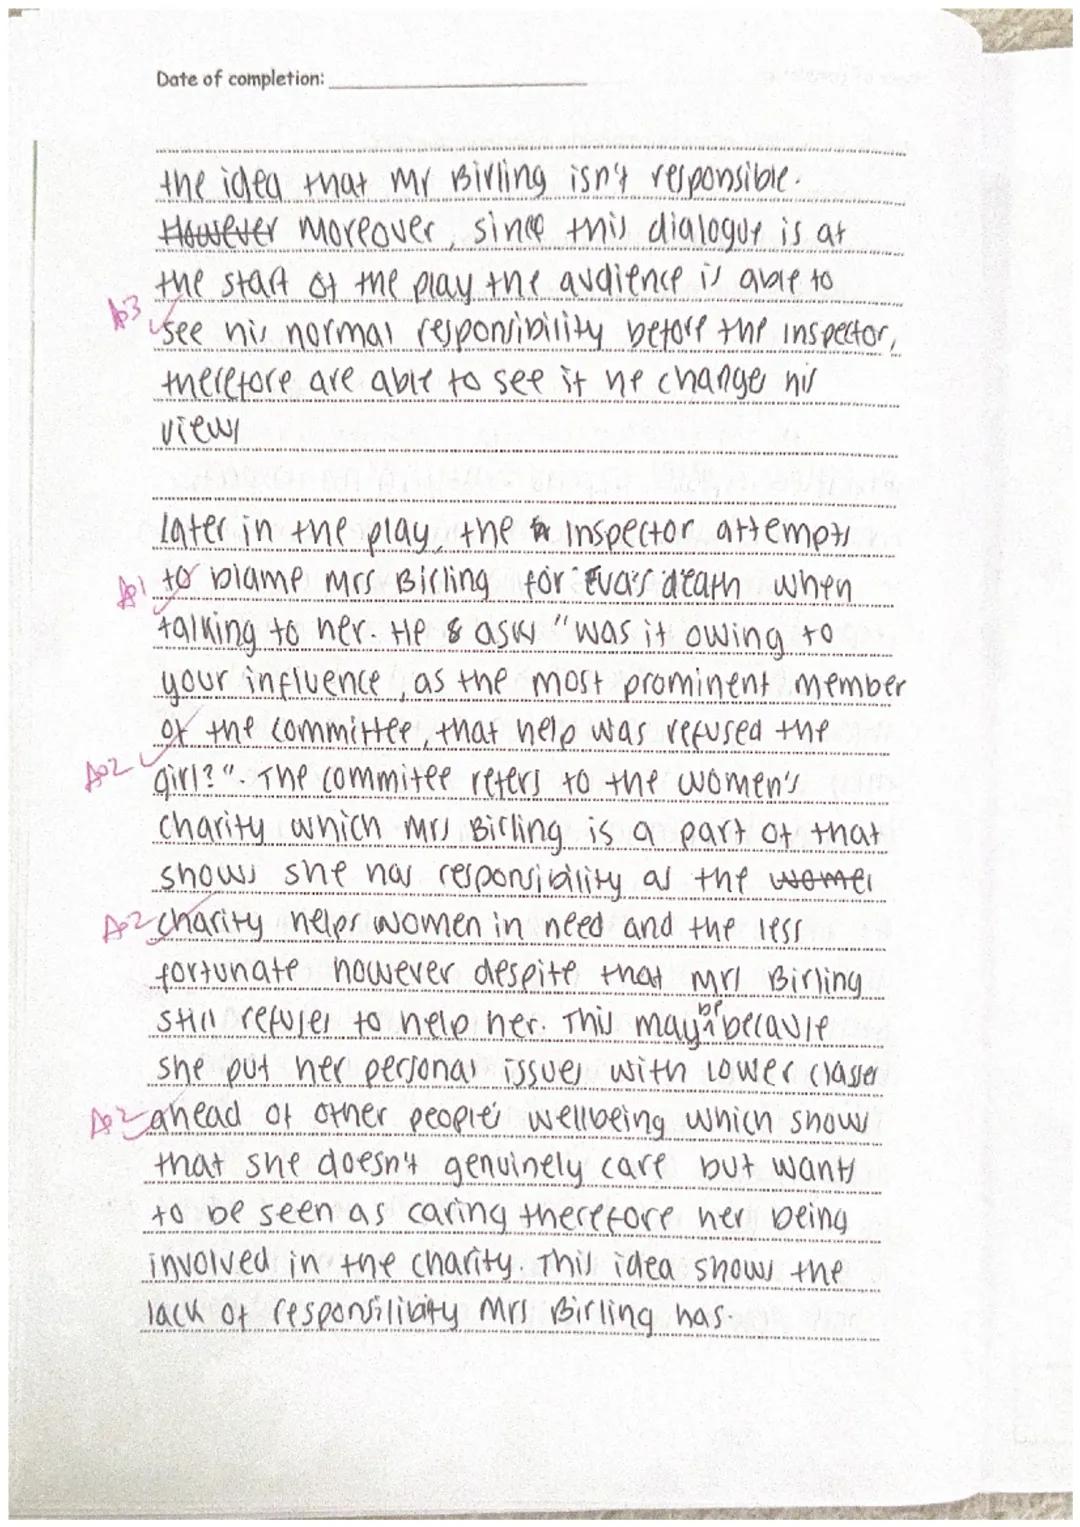 Date of completion:
the idea that Mr Birling isn't responsible.
However Moreover, since this dialogue is at
the start of the play the audience is able to
A03
see his normal responsibility before the inspector,
therefore are able to see if he changes his
views
Later in the play, the Inspector attempts
A01
to blame Mrs Birling for Eva's death when
talking to her. He asks "was it owing to
your influence, as the most prominent member
of the committee, that help was refused the
A02
girl?". The commitee refers to the women's
charity which Mrs Birling is a part of that
shows she has responsibility as the women
A02
charity helps women in need and the less
fortunate however despite that Mrs Birling
still refuses to help her. This may be because
she put her personal issues with lower classes
A02
ahead of other people's wellbeing which shows
that she doesn't genuinely care but wants
to be seen as caring therefore her being
involved in the charity. This idea shows the
lack of responsilibity Mrs Birling has.